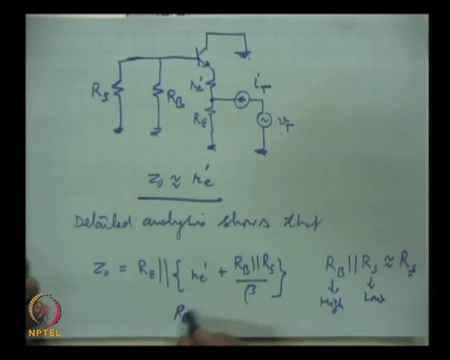 R_S R_B r_e' i_T
R_E v_T
Z_o ≈ r_e'
Detailed analysis shows that
Z_o = R_E || { r_e' + R_B||R_S / β } R_B || R_S ≈ R_S
↓ High ↓ Low
R
NPTEL